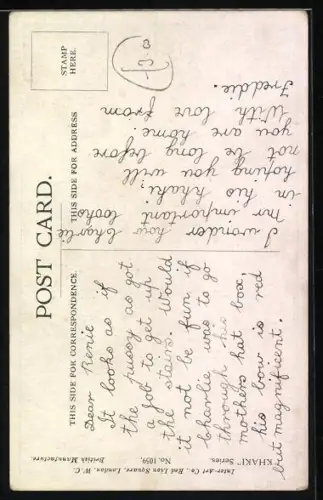 POST CARD.
THIS SIDE FOR CORRESPONDENCE.
THIS SIDE FOR ADDRESS
STAMP
HERE.
Dear Renie
It looks as if
the pussy as got
a job to get up
the stairs. Would
it not be fun if
Charlie was to go
through his
mothers hat box,
his bow is red
but magnificent.
I wonder how Charlie
Mr important looks
in his khaki.
hoping you will
not be long before
you are home.
With love from
Freddie.
"KHAKI" Series.
No. 1059.
Inter-Art Co., Red Lion Square, London, W.C.
British Manufacture.